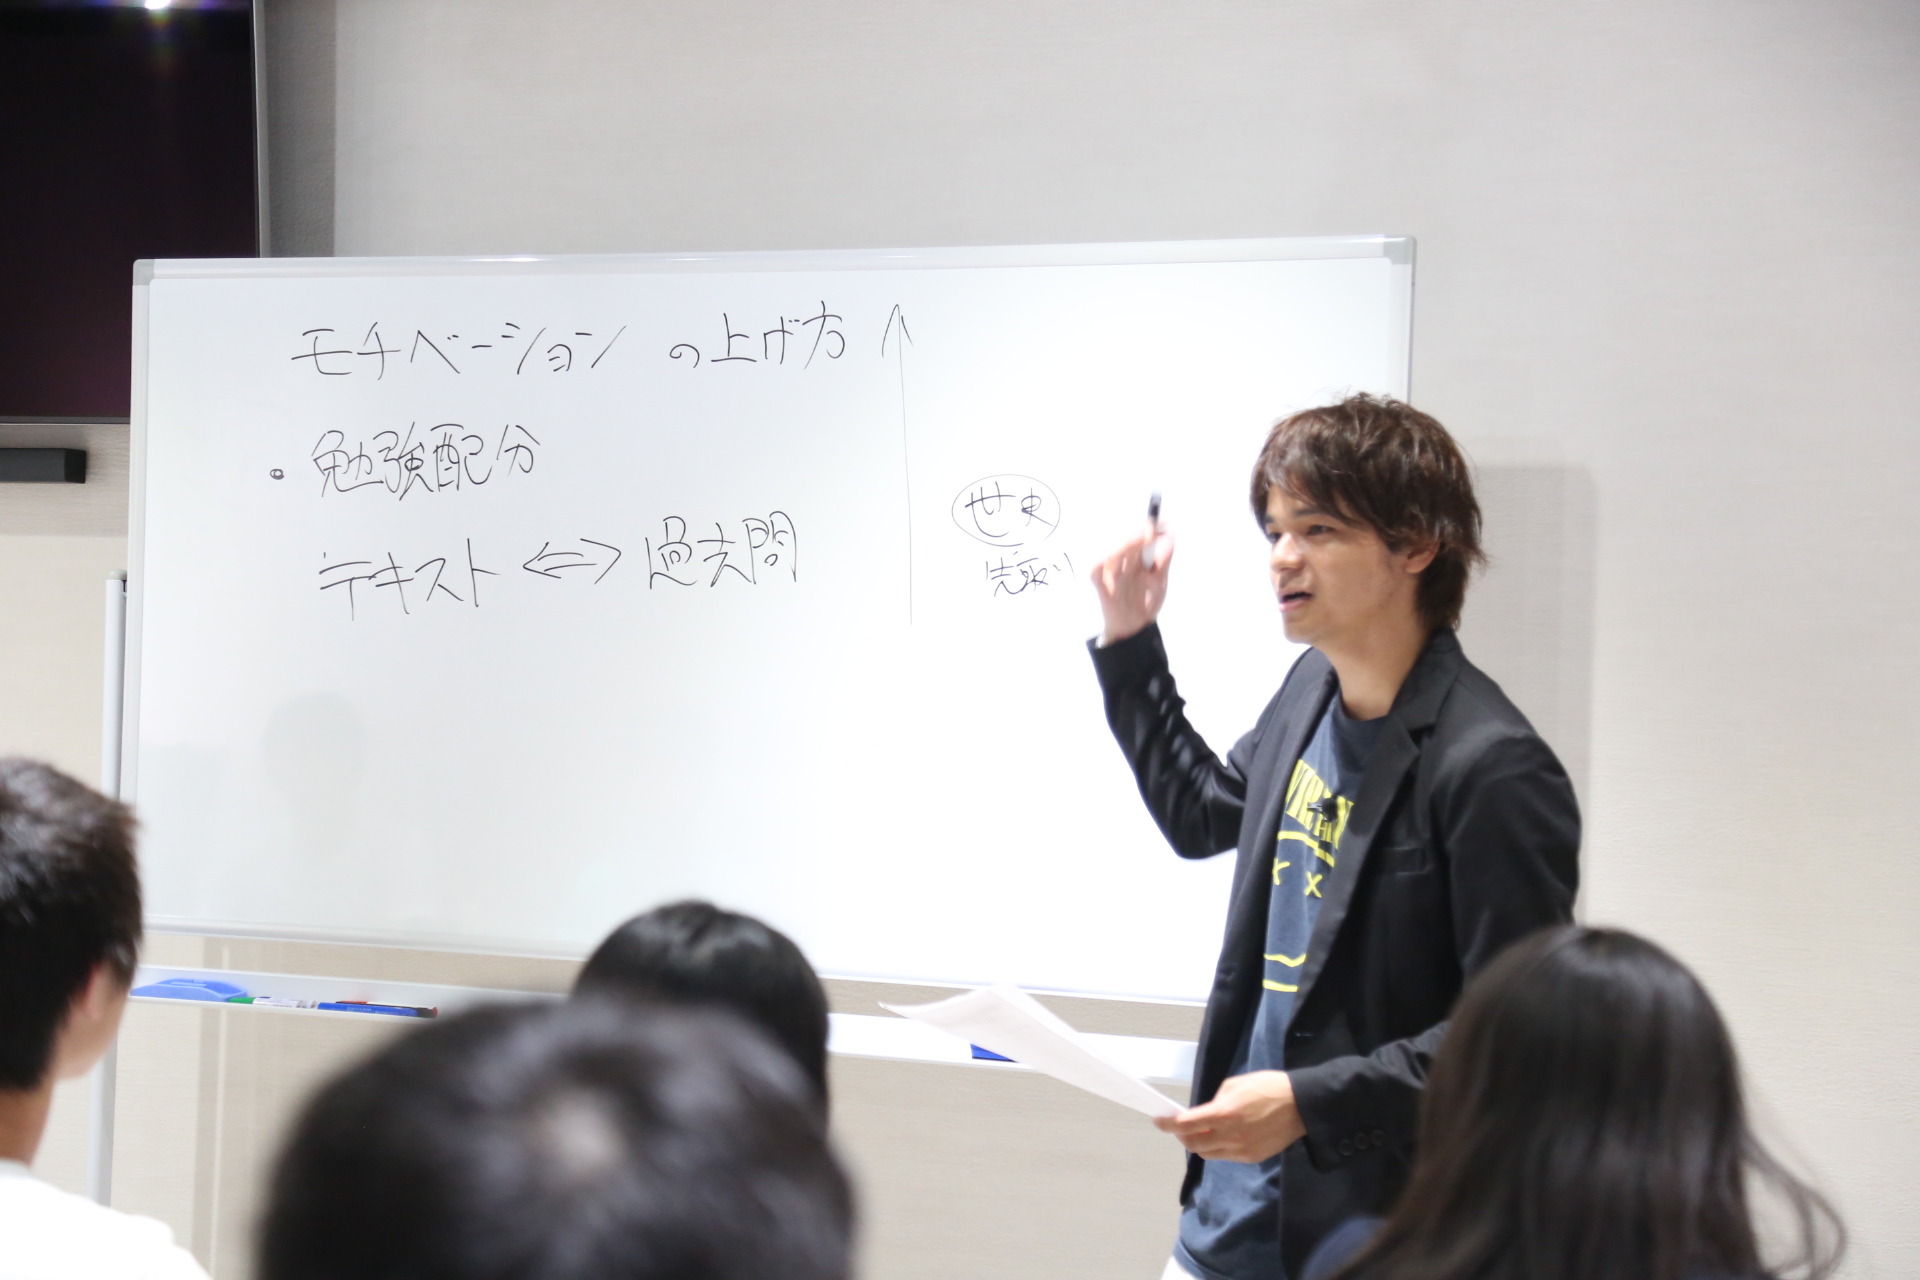 モチベーションの上げ方
・勉強配分
テキスト⇔過去問
世史
先取り